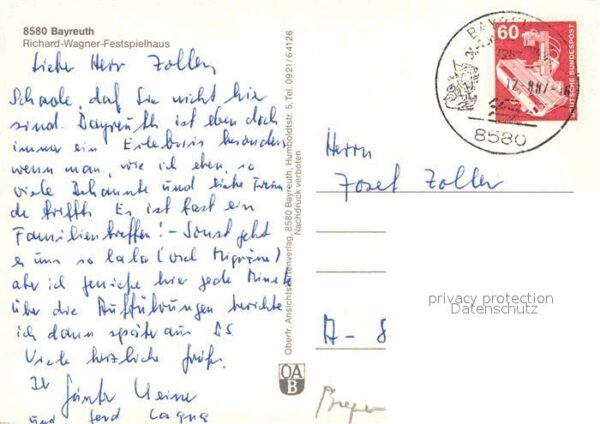 8580 Bayreuth
Richard-Wagner-Festspielhaus
Lieber Herr Zoller,
Schade, daß Sie nicht hier
sind. Bayreuth ist eben doch
immer ein Erlebnis besonders
wenn man, wie ich eben, so
viele Bekannte und liebe Freun
de trifft. Es ist fast ein
Familientreffen! – Sonst geht
es uns so lala (viel Migräne)
aber ich genieße hier jede Minute
über die Aufführungen berichte
ich dann später aus
Viele herzliche Grüße
Ihr Günter
und Gerd
Oberfr. Ansichtskartenverlag, 8580 Bayreuth, Humboldtstr. 5, Tel. 0921/64126
Nachdruck verboten
OA
B
60
DEUTSCHE BUNDESPOST
8580
Herrn
Josef Zoller
A-8
Bregen
privacy protection
Datenschutz